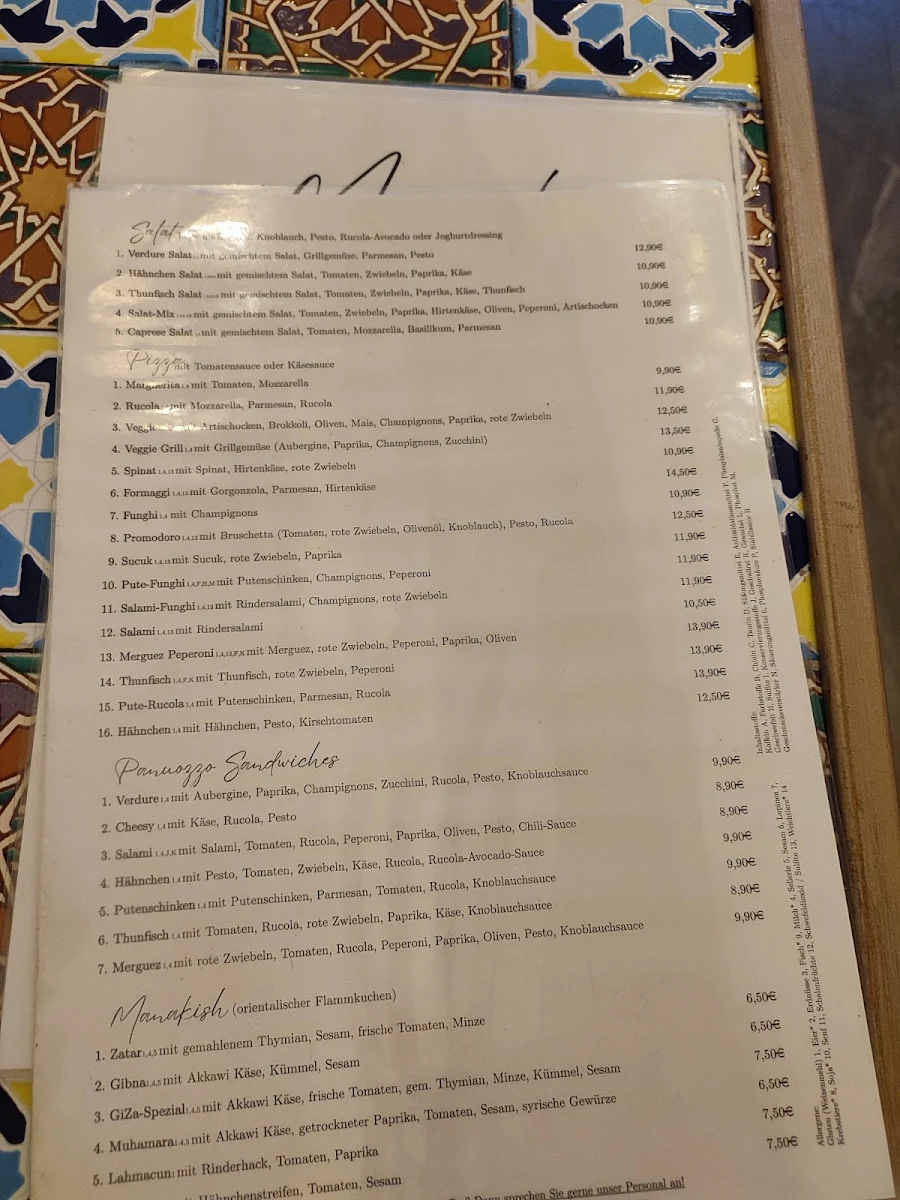 Salat Knoblauch, Pesto, Rucola-Avocado oder Joghurtdressing
1. Verdure Salat mit gemischtem Salat, Grillgemüse, Parmesan, Pesto 12,90€
2 Hähnchen Salat mit gemischtem Salat, Tomaten, Zwiebeln, Paprika, Käse 10,90€
3. Thunfisch Salat mit gemischtem Salat, Tomaten, Zwiebeln, Paprika, Käse, Thunfisch 10,90€
4. Salat-Mix mit gemischtem Salat, Tomaten, Zwiebeln, Paprika, Hirtenkäse, Oliven, Peperoni, Artischocken 10,90€
5. Caprese Salat mit gemischtem Salat, Tomaten, Mozzarella, Basilikum, Parmesan 10,90€
Pizza mit Tomatensauce oder Käsesauce
1. Margherita 1,4 mit Tomaten, Mozzarella 9,90€
2. Rucola mit Mozzarella, Parmesan, Rucola 11,90€
3. Veggie Artischocken, Brokkoli, Oliven, Mais, Champignons, Paprika, rote Zwiebeln 12,50€
4. Veggie Grill 1,4 mit Grillgemüse (Aubergine, Paprika, Champignons, Zucchini) 13,50€
5. Spinat 1,4,13 mit Spinat, Hirtenkäse, rote Zwiebeln 10,90€
6. Formaggi 1,4,13 mit Gorgonzola, Parmesan, Hirtenkäse 14,50€
7. Funghi 1,4 mit Champignons 10,90€
8. Promodoro 1,4,13 mit Bruschetta (Tomaten, rote Zwiebeln, Olivenöl, Knoblauch), Pesto, Rucola 12,50€
9. Sucuk 1,4,13 mit Sucuk, rote Zwiebeln, Paprika 11,90€
10. Pute-Funghi 1,4,F,H,M mit Putenschinken, Champignons, Peperoni 11,90€
11. Salami-Funghi 1,4,13 mit Rindersalami, Champignons, rote Zwiebeln 11,90€
12. Salami 1,4,13 mit Rindersalami 10,50€
13. Merguez Peperoni 1,4,13,F,K mit Merguez, rote Zwiebeln, Peperoni, Paprika, Oliven 13,90€
14. Thunfisch 1,4,F,K mit Thunfisch, rote Zwiebeln, Peperoni 13,90€
15. Pute-Rucola 1,4 mit Putenschinken, Parmesan, Rucola 13,90€
16. Hähnchen 1,4 mit Hähnchen, Pesto, Kirschtomaten 12,50€
Panuozzo Sandwiches
1. Verdure 1,4 mit Aubergine, Paprika, Champignons, Zucchini, Rucola, Pesto, Knoblauchsauce 9,90€
2. Cheesy 1,4 mit Käse, Rucola, Pesto 8,90€
3. Salami 1,4,J,K mit Salami, Tomaten, Rucola, Peperoni, Paprika, Oliven, Pesto, Chili-Sauce 8,90€
4. Hähnchen 1,4 mit Pesto, Tomaten, Zwiebeln, Käse, Rucola, Rucola-Avocado-Sauce 9,90€
5. Putenschinken 1,4 mit Putenschinken, Parmesan, Tomaten, Rucola, Knoblauchsauce 9,90€
6. Thunfisch 1,4 mit Tomaten, Rucola, rote Zwiebeln, Paprika, Käse, Knoblauchsauce 8,90€
7. Merguez 1,4 mit rote Zwiebeln, Tomaten, Rucola, Peperoni, Paprika, Oliven, Pesto, Knoblauchsauce 9,90€
Manakish (orientalischer Flammkuchen)
1. Zatar 1,4,5 mit gemahlenem Thymian, Sesam, frische Tomaten, Minze 6,50€
2. Gibna 1,4,5 mit Akkawi Käse, Kümmel, Sesam 6,50€
3. GiZa-Spezial 1,4,5 mit Akkawi Käse, frische Tomaten, gem. Thymian, Minze, Kümmel, Sesam 7,50€
4. Muhamara 1,4,5 mit Akkawi Käse, getrockneter Paprika, Tomaten, Sesam, syrische Gewürze 6,50€
5. Lahmacun 1 mit Rinderhack, Tomaten, Paprika 7,50€
mit Hähnchenstreifen, Tomaten, Sesam 7,50€
Dann sprechen Sie gerne unser Personal an!
Inhaltsstoffe:
Koffein A, Farbstoffe B, Chinin C, Taurin D, Süßungsmittel E, Antioxidationsmittel F, Phenylalaninquelle G,
Geschwefelt H, Sulfite I, Konservierungsstoffe J, Geschwärzt K, Gewachst L, Phosphat M,
Geschmacksverstärker N, Säuerungsmittel O, Phosphorsäure P, Stabilisator R
Allergene:
Gluten (Weizenmehl) 1, Eier* 2, Erdnüsse 3, Fisch* 9, Milch* 4, Sellerie 5, Sesam 6, Lupinen 7,
Krebstiere* 8, Soja* 10, Senf 11, Schalenfrüchte 12, Schwefeldioxid / Sulfite 13, Weichtiere* 14